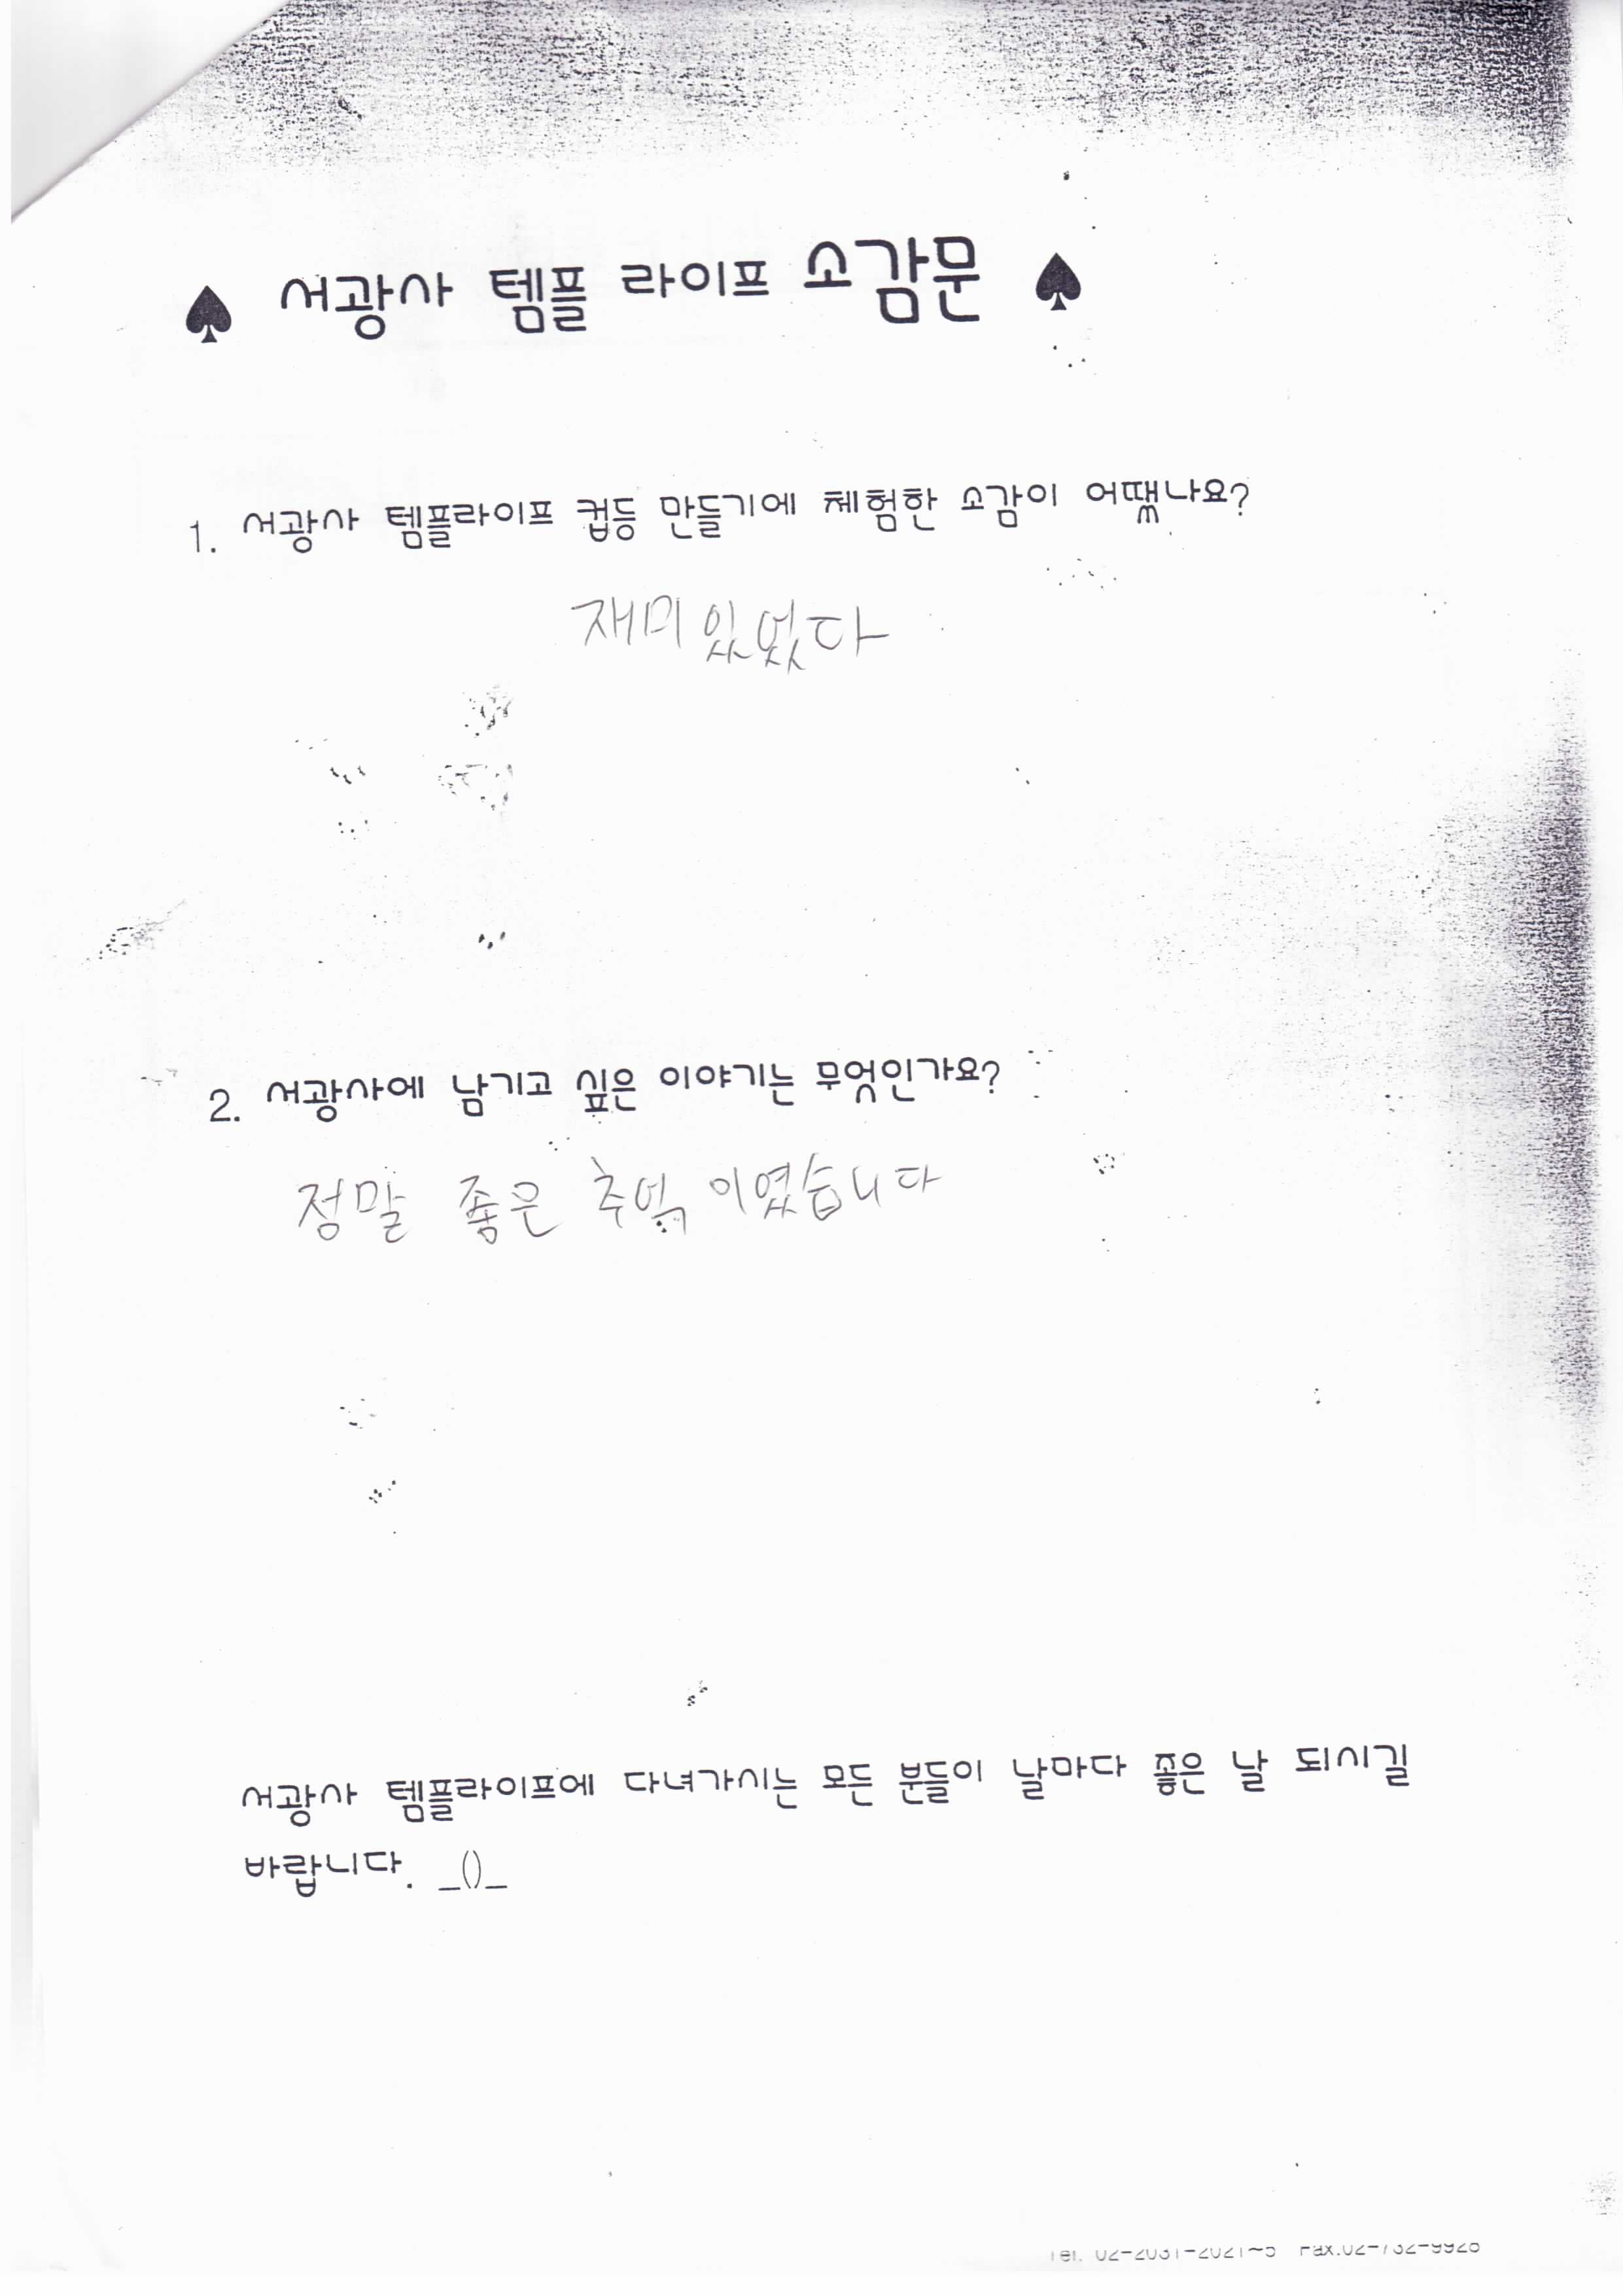 ♠ 서광사 템플 라이프 소감문 ♠
1. 서광사 템플라이프 컵등 만들기에 체험한 소감이 어땠나요?
재미있었다
2. 서광사에 남기고 싶은 이야기는 무엇인가요?
정말 좋은 추억 이였습니다
서광사 템플라이프에 다녀가시는 모든 분들이 날마다 좋은 날 되시길
바랍니다. _()_
Tel. 02-2031-2021~5 Fax.02-732-9928